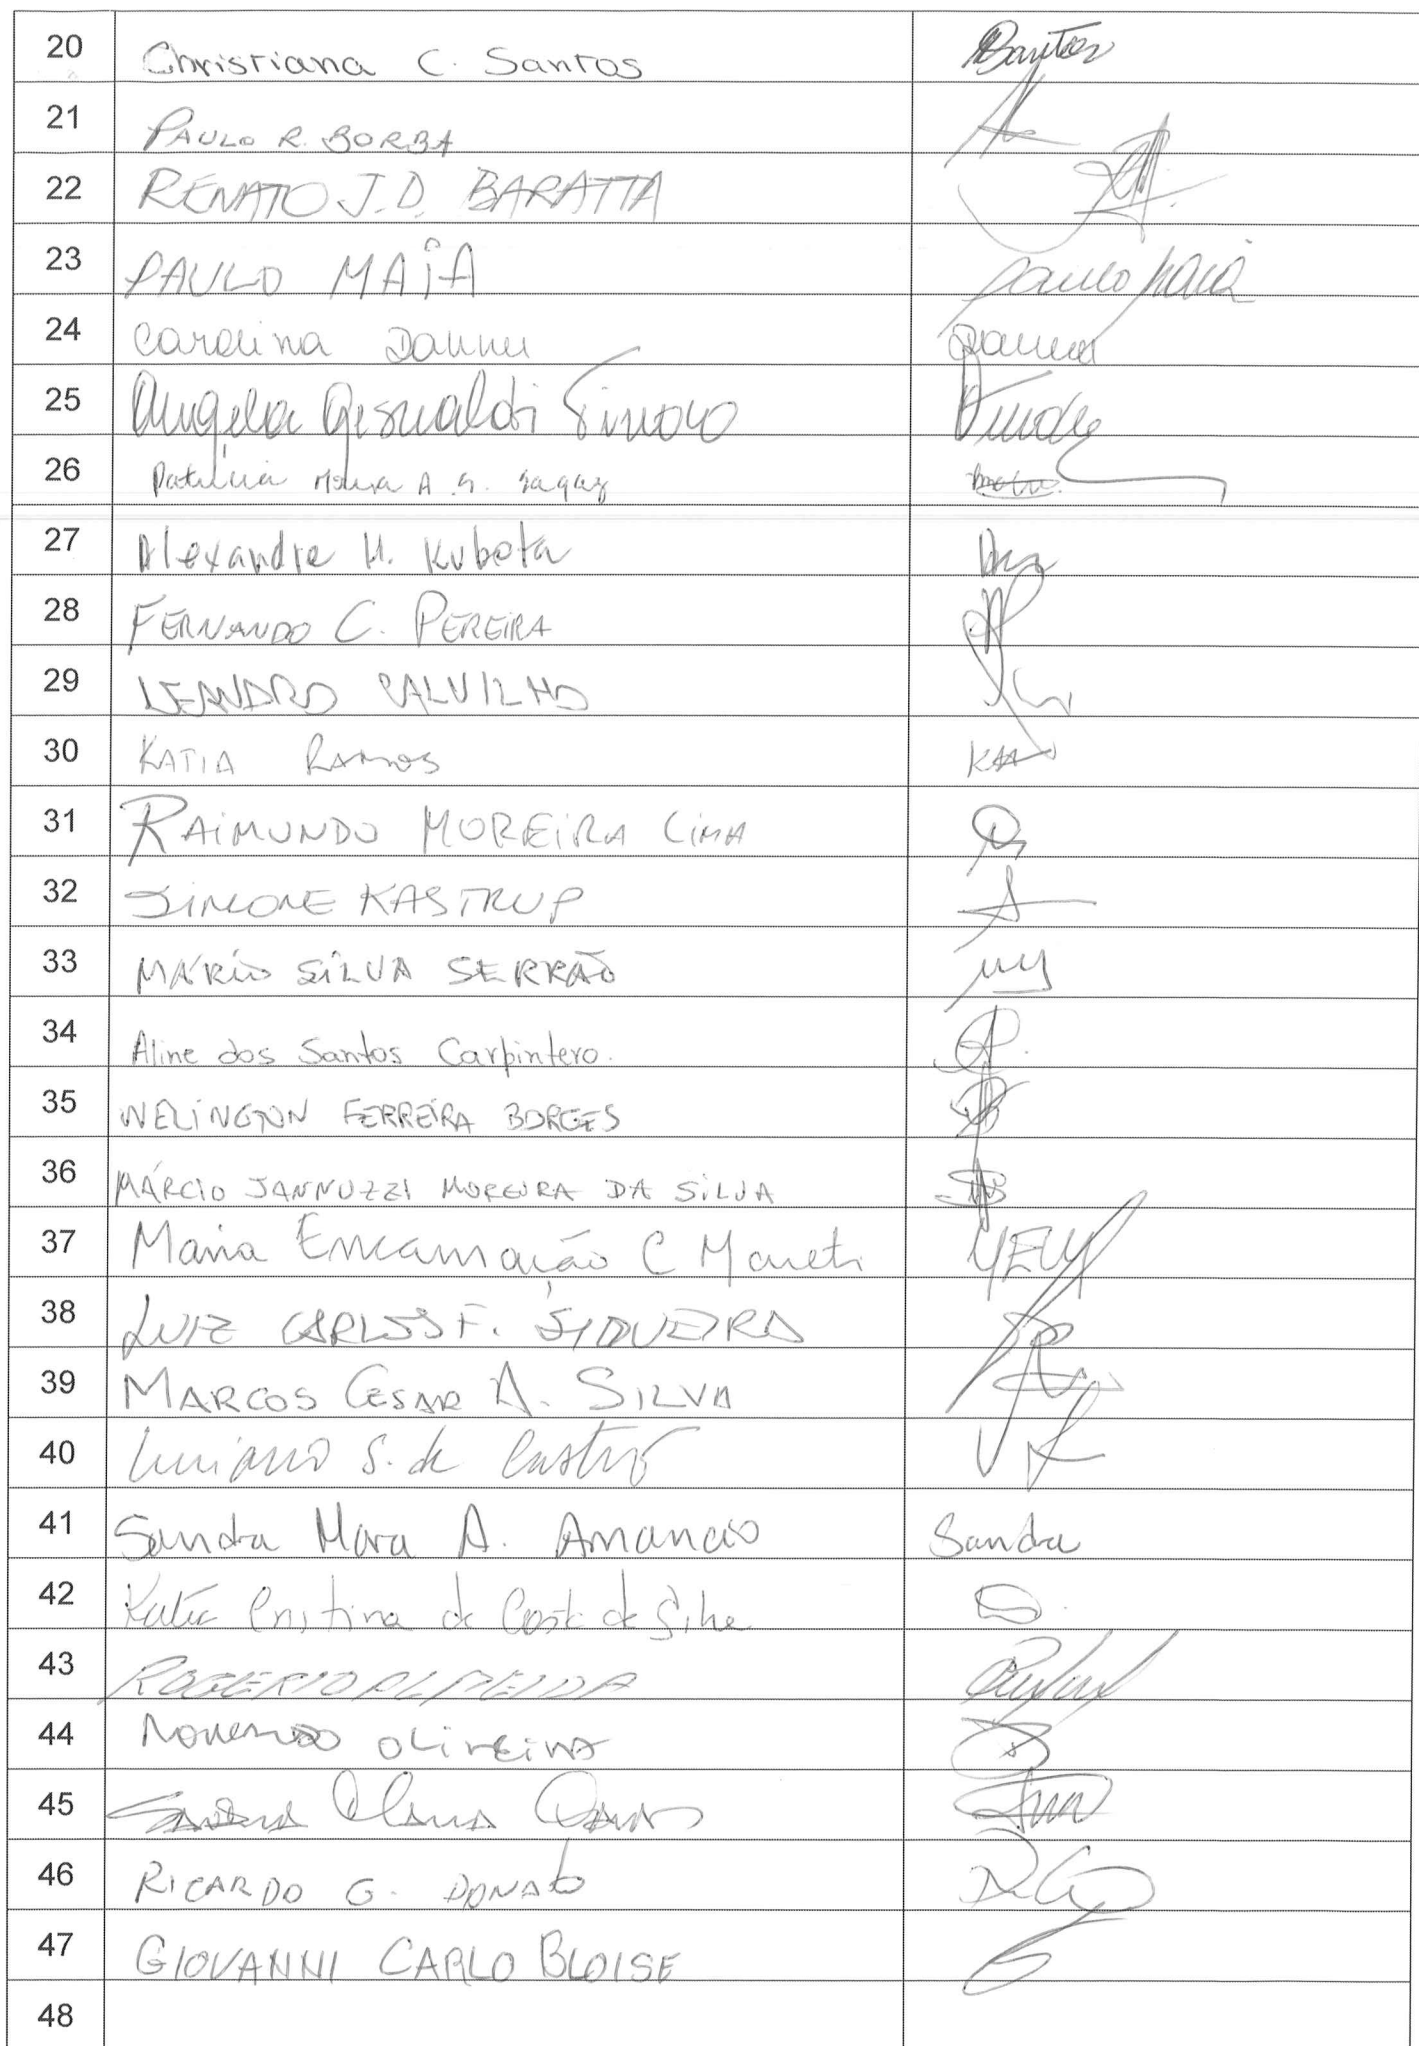 20 Christiana C. Santos Santos
21 PAULO R. BORBA
22 RENATO J.D. BARATTA
23 PAULO MAIA Paulo Maia
24 Carolina
25 Angela Gesualdi
26 Patrícia A. G.
27 Alexandre H. Kubota
28 FERNANDO C. PEREIRA
29 LEANDRO CALVILHO
30 KATIA RAMOS
31 RAIMUNDO MOREIRA LIMA
32 SIMONE KASTRUP
33 MÁRIO SILVA SERRÃO
34 Aline dos Santos Carpintero.
35 WELINGTON FERREIRA BORGES
36 MÁRCIO JANNUZZI MOREIRA DA SILVA
37 Maria Encarnação C
38 LUIZ CARLOS F. SIQUEIRA
39 MARCOS CESAR A. SILVA
40 Luciano S. de Castro
41 Sandra Mara A. Amancio Sandra
42 Katia Cristina da Costa da Silva
43 ROGERIO ALMEIDA
44 OLIVEIRA
45 SANDRA
46 RICARDO G. DONATO
47 GIOVANNI CARLO BLOISE
48